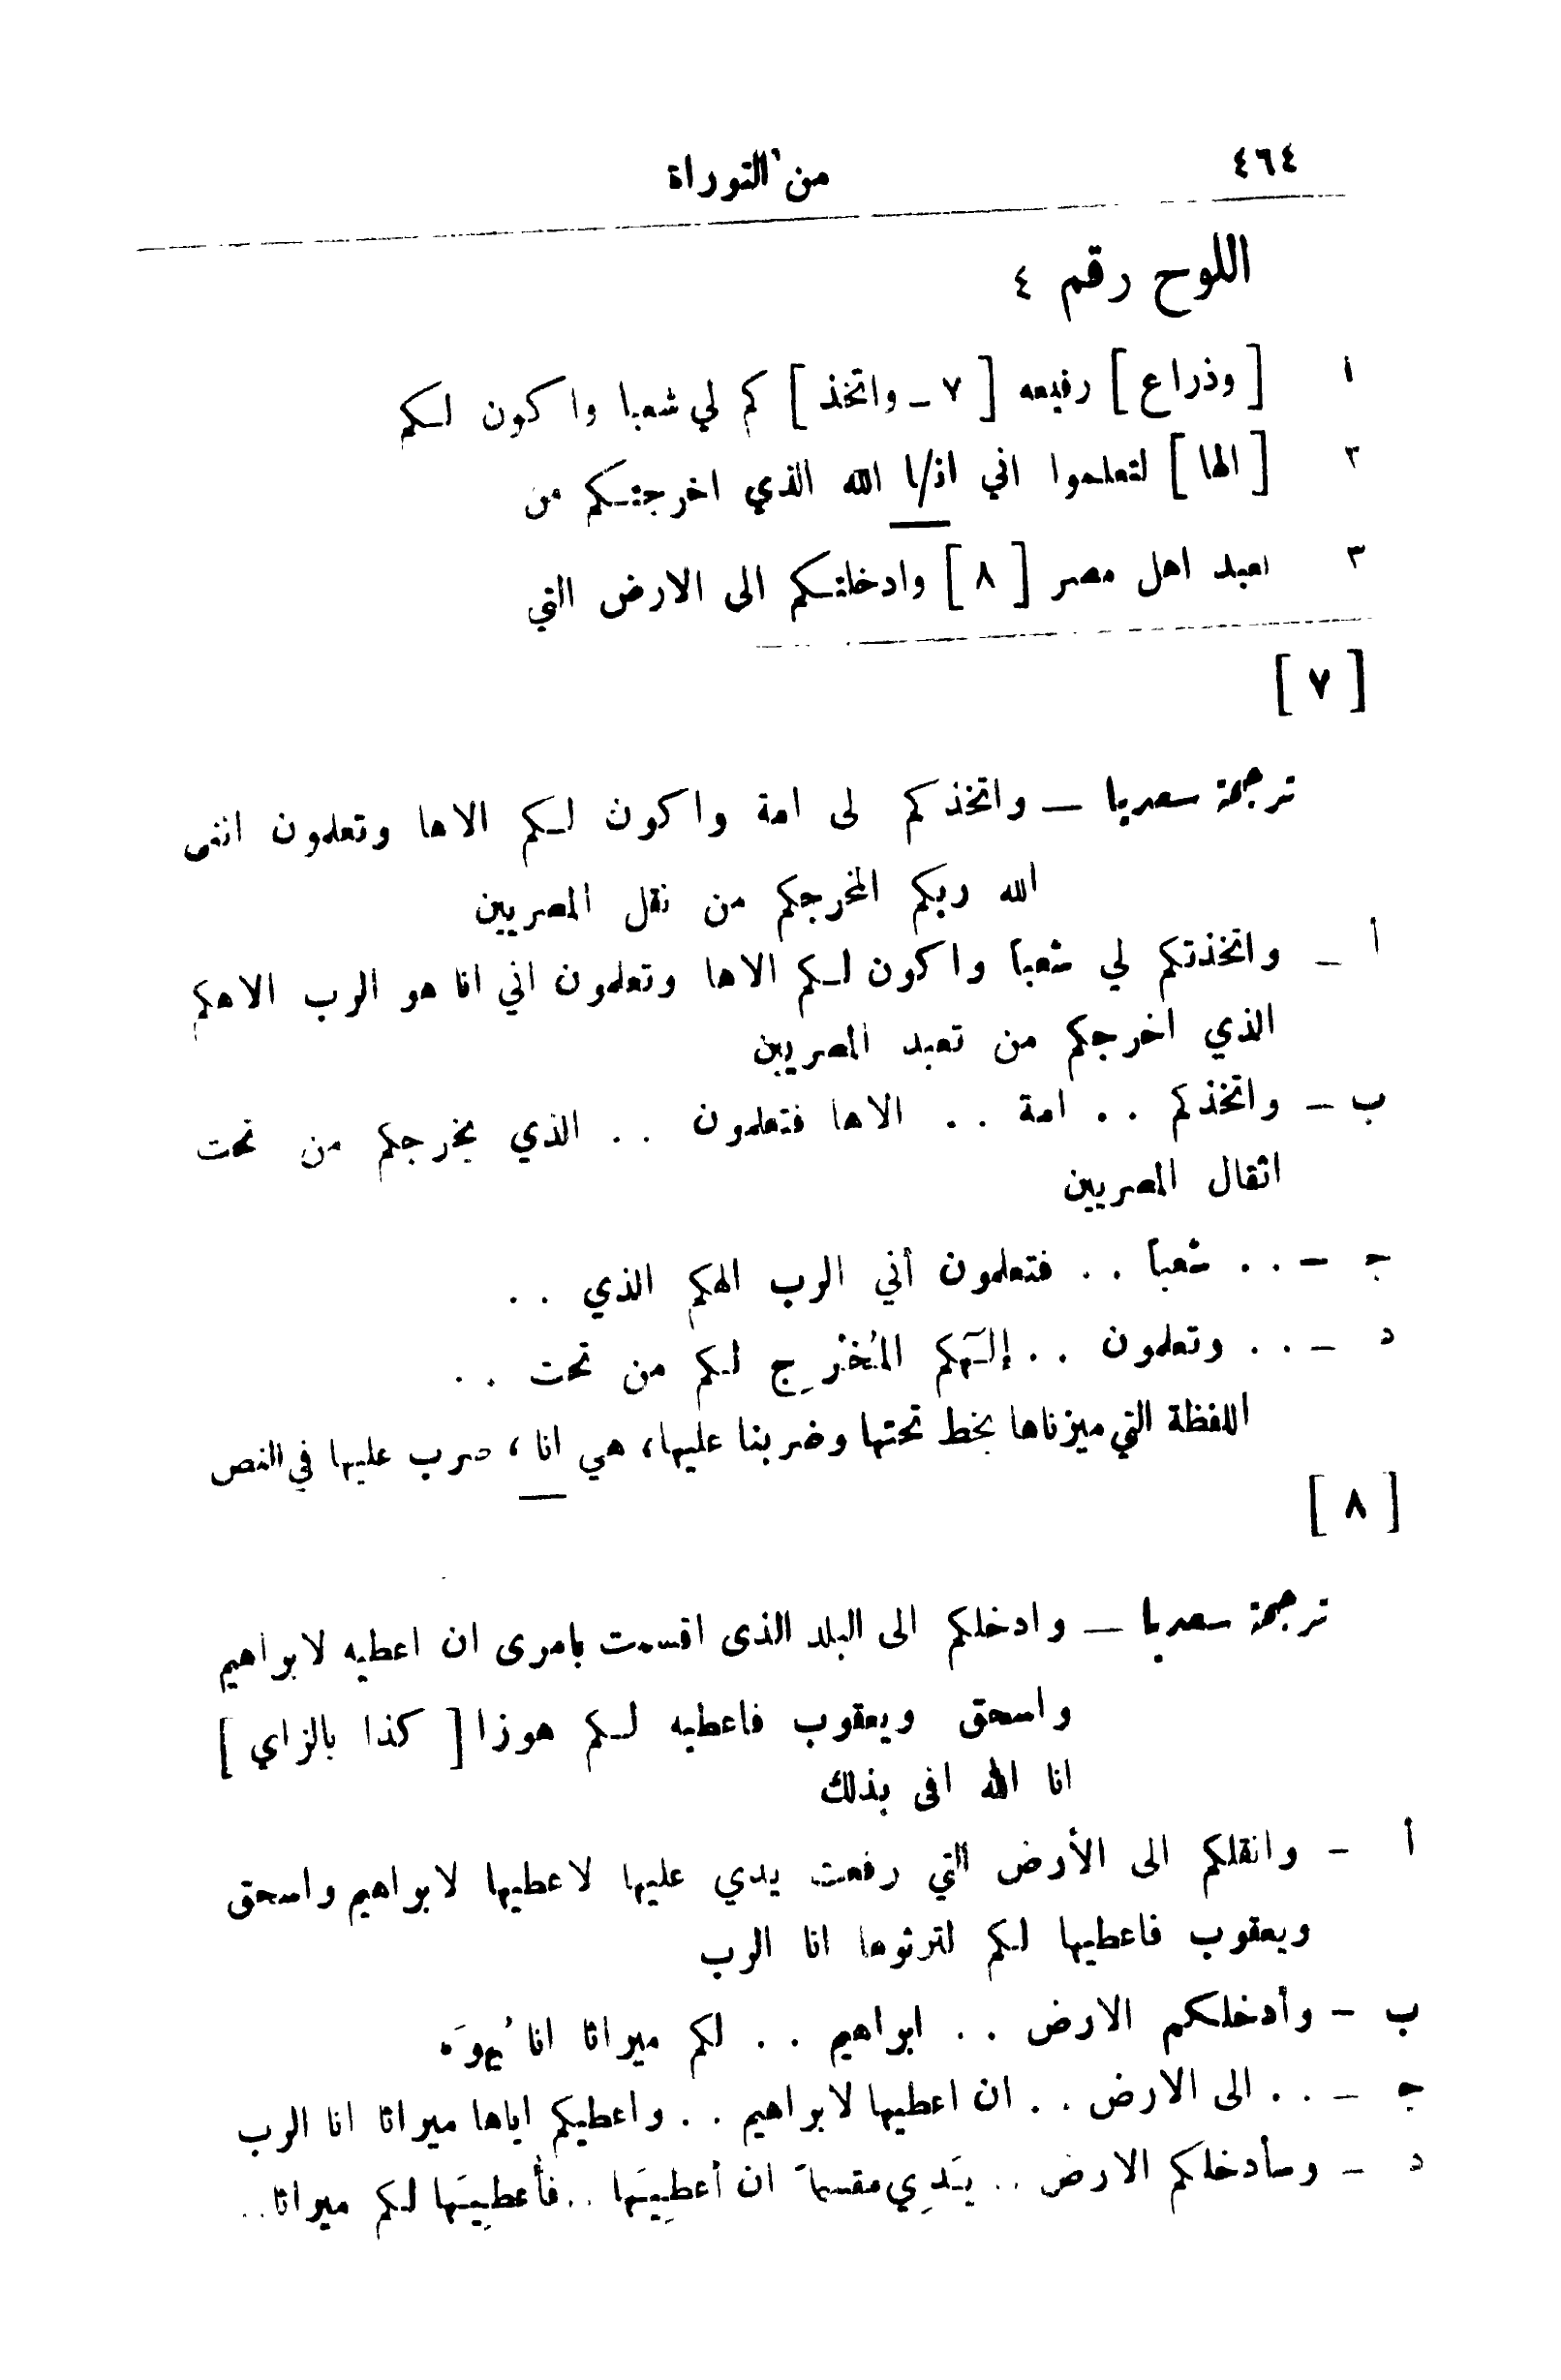 ٤٦٤
من التوراة
اللوح رقم ٤
١ [ وذراع ] رفيعه [ ٧ ــ واتخذ ] كم لي شعبا واكون لكم
٢ [ الها ] لتعلموا اني انا الله الذي اخرجتكم من
٣ تعبد اهل مصر [ ٨ ] وادخلتكم الى الارض التي
[ ٧ ]
ترجمة سعديا ــ واتخذكم لى امة واكون لكم الاها وتعلمون اننى
الله ربكم المخرجكم من نقل المصريين
أ ــ واتخذتكم لي شعباً واكون لكم الاها وتعلمون اني انا هو الرب الاهكم
الذي اخرجكم من تعبد المصريين
ب ــ واتخذكم . . امة . . الاها فتعلمون . . الذي يخرجكم من تحت
اثقال المصريين
ج ــ . . شعباً . . فتعلمون أني الرب الهكم الذي . .
د ــ . . وتعلمون . . إلٓهكم المُخْرِج لكم من تحت . .
اللفظة التي ميزناها بخط تحتها وضربنا عليها، هي انا ، ضرب عليها في النص
[ ٨ ]
ترجمة سعديا ــ وادخلكم الى البلد الذى اقسمت بامرى ان اعطيه لابراهيم
واسحق ويعقوب فاعطيه لكم هوزا [ كذا بالزاي ]
انا الله افى بذلك
أ ــ وانقلكم الى الأرض التي رفعت يدي عليها لاعطيها لابراهيم واسحق
ويعقوب فاعطيها لكم لترثوها انا الرب
ب ــ وأدخلكم الارض . . ابراهيم . . لكم ميراثا انا
ج ــ . . الى الارض . . ان اعطيها لابراهيم . . واعطيكم اياها ميراثا انا الرب
د ــ وسأدخلكم الارض . . يَدِي مقسماً ان أعطِيَها . . فأُعطِيَها لكم ميراثا . .